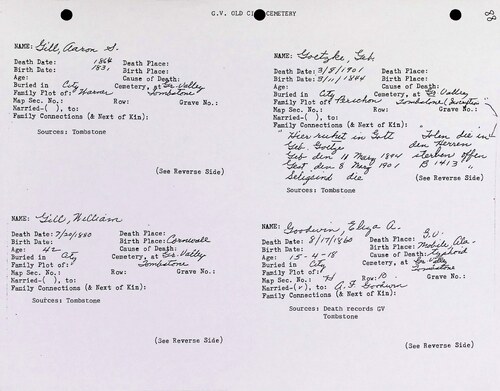 G.V. OLD CITY CEMETERY
88
NAME: Gill, Aaron S.
Death Date: 1864 Death Place:
Birth Date: 183, Birth Place:
Age: Cause of Death:
Buried in City Cemetery, at Gr. Valley
Family Plot of: Warner Tombstone
Map Sec. No.: Row: Grave No.:
Married-( ), to:
Family Connections (& Next of Kin):
Sources: Tombstone
(See Reverse Side)
NAME: Goetzke, Geb.
Death Date: 3/8/1901 Death Place:
Birth Date: 3/11/1844 Birth Place:
Age: Cause of Death:
Buried in City Cemetery, at Gr Valley
Family Plot of: Perichon Tombstone (Inscription)
Map Sec. No.: Row: Grave No.:
Married-( ), to:
Family Connections (& Next of Kin):
"Hier ruhet in Gott Tolen die in
Geb. Goetze den Herren
Geb den 11 Marz 1844 sterben Offen
Gest den 8 Marz 1901 B 1413"
Seligsind die
(See Reverse Side)
Sources: Tombstone
NAME: Gill, William
Death Date: 7/20/1880 Death Place:
Birth Date: Birth Place: Cornwall
Age: 42 Cause of Death:
Buried in City Cemetery, at Gr. Valley
Family Plot of: Tombstone
Map Sec. No.: Row: Grave No.:
Married-( ), to:
Family Connections (& Next of Kin):
Sources: Tombstone
(See Reverse Side)
NAME: Goodwin, Eliza A.
Death Date: 8/17/1860 Death Place: G.V.
Birth Date: Birth Place: Mobile, Ala.
Age: 15-4-18 Cause of Death: Typhoid
Buried in City Cemetery, at Gr. Valley
Family Plot of: Tombstone
Map Sec. No.: Row: 10 Grave No.:
Married-(✓), to: A. F. Goodwin
Family Connections (& Next of Kin):
Sources: Death records GV
Tombstone
(See Reverse Side)